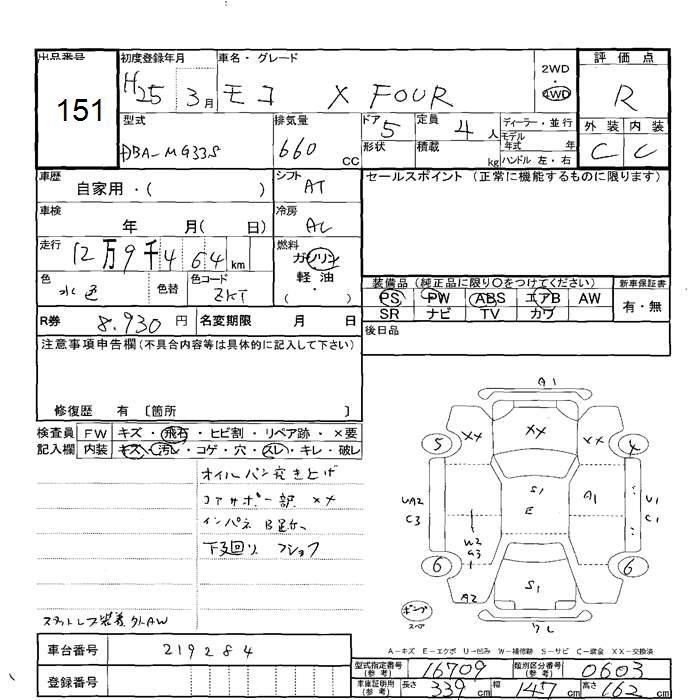 出品番号 初度登録年月 車名・グレード 2WD 評価点
151 H25 3月 モコ X FOUR ・4WD R
型式 排気量 ドア 5 定員 4人 ディーラー・並行 外装 内装
DBA-MG33S 660 CC 形状 積載 kg モデル年式 年 C C
ハンドル 左・右
車歴 自家用・( ) シフト AT セールスポイント(正常に機能するものに限ります)
車検 年 月( 日) 冷房 AC
走行 12万9千464km 燃料 ガソリン
軽油
・( )・
色 水色 色替 色コード ZKT
装備品(純正品に限り○をつけてください) 新車保証書
PS PW ABS エアB AW 有・無
SR ナビ TV カワ
R券 8.930円 名変期限 月 日 後日品
注意事項申告欄(不具合内容等は具体的に記入して下さい)
修復歴 有 〔箇所 〕
検査員 FW キズ・飛石・ヒビ割・リペア跡・×要
記入欄 内装 キズ・汚レ・コゲ・穴・スレ・キレ・破レ
オイルパン突き上げ
コアサポ一部 XX
インパネ
下回り
A1
XX XX XX
5 4
S1 A1
E
UA2
C3
U1
C1
W2
A3
6 6
A2 S1
スペア
A−キズ E−エクボ U−凹み W−補修跡 S−サビ C−腐食 XX−交換済
車台番号 219284
登録番号
型式指定番号(参考) 16709 類別区分番号(参考) 0603
車庫証明用(参考) 長さ 339cm 幅 147cm 高さ 162cm